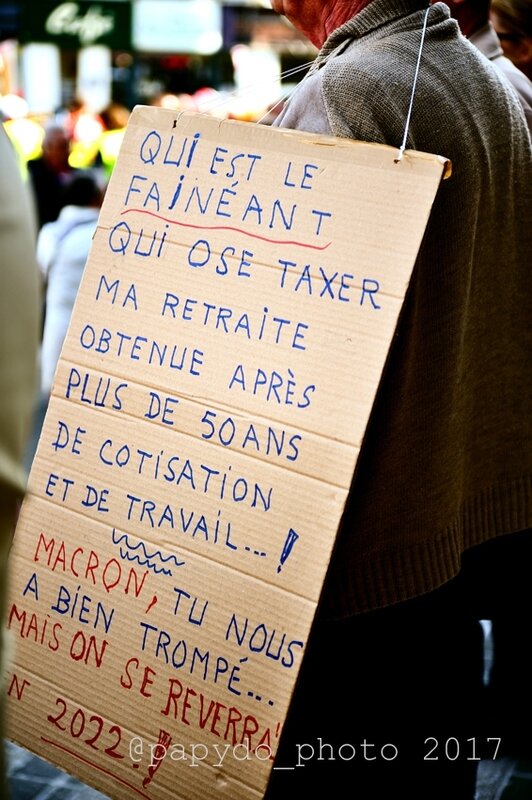 QUI EST LE
FAINÉANT
QUI OSE TAXER
MA RETRAITE
OBTENUE APRÈS
PLUS DE 50 ANS
DE COTISATION
ET DE TRAVAIL...!
MACRON, TU NOUS
A BIEN TROMPÉ...
MAIS ON SE REVERRA
N 2022!
@papydo_photo 2017